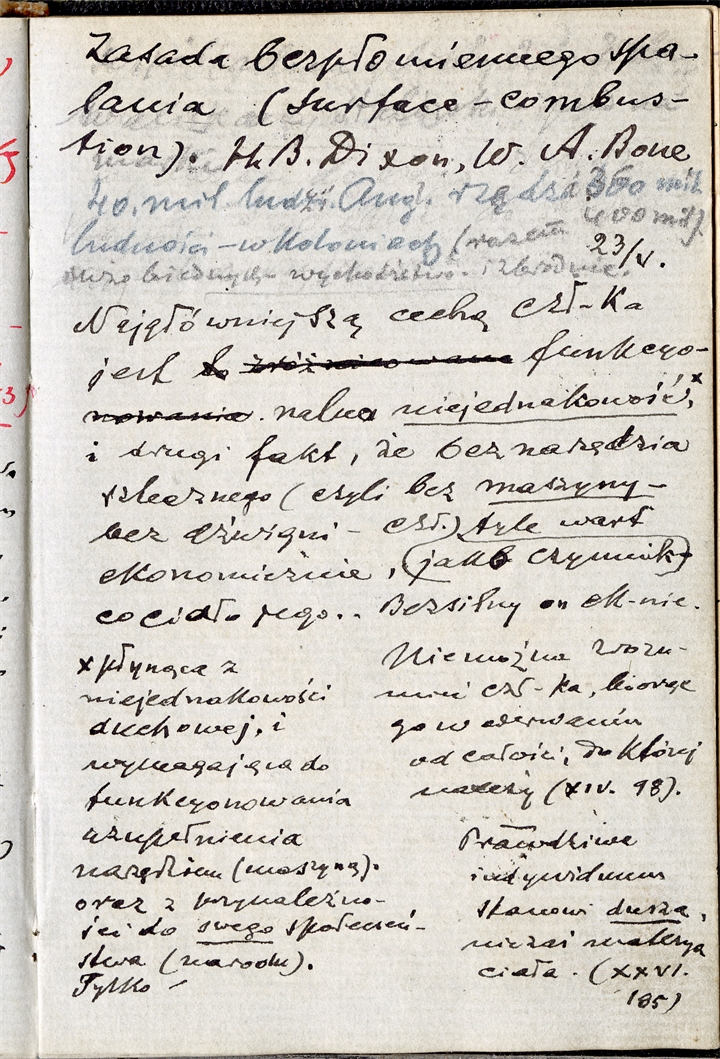 Zasada bezpłomiennego spa-
lania (surface-combus-
tion). H.B. Dixon, W. A. Bone
40. mil. ludzi Ang. rządzi 360 mil.
ludności - w Koloniach (razem 400 mil).
23/V.
wychodźstwo i zbrodnie.
Najgłówniejszą cechą czł-ka
jest funkcyo-
nalna niejednakowość,x
i drugi fakt, że bez narzędzia
(czyli bez maszyny -
bez dźwigni - czł.) tyle wart
ekonomicznie, (jako czynnik)
co cidło jego.. Bezsilny on ek-nie.
x płynąca z
niejednakowości
duchowej, i
wymagająca do
funkcyonowania
uzupełnienia
narzędziem (maszyną).
oraz z przynależno-
ści do swego społeczeń-
stwa (narodu).
Tylko -
Niemożna zrozu-
mieć czł-ka, biorąc
go w oderwaniu
od całości, do której
należy (XIV. 98).
Prawdziwe
indywiduum
stanowi dusza,
nie zaś materya
ciała. (XXVI.
185)